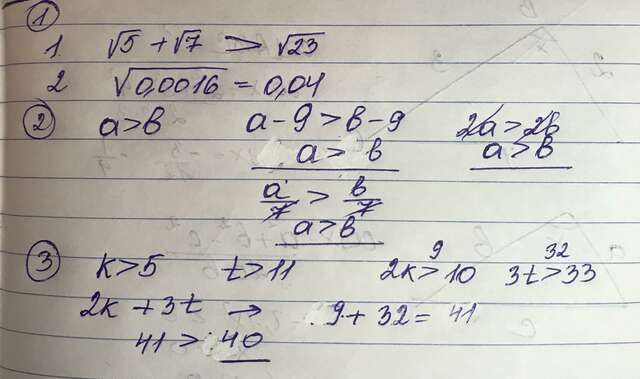 ①
1 √5 + √7 > √23
2 √0,0016 = 0,04
② a>b a-9>b-9 2a>2b
a> b a>b
a/7 > b/7
a>b
③ k>5 t>11 2k>10 9 3t>33 32
2k + 3t → 9+ 32 = 41
41 > 40